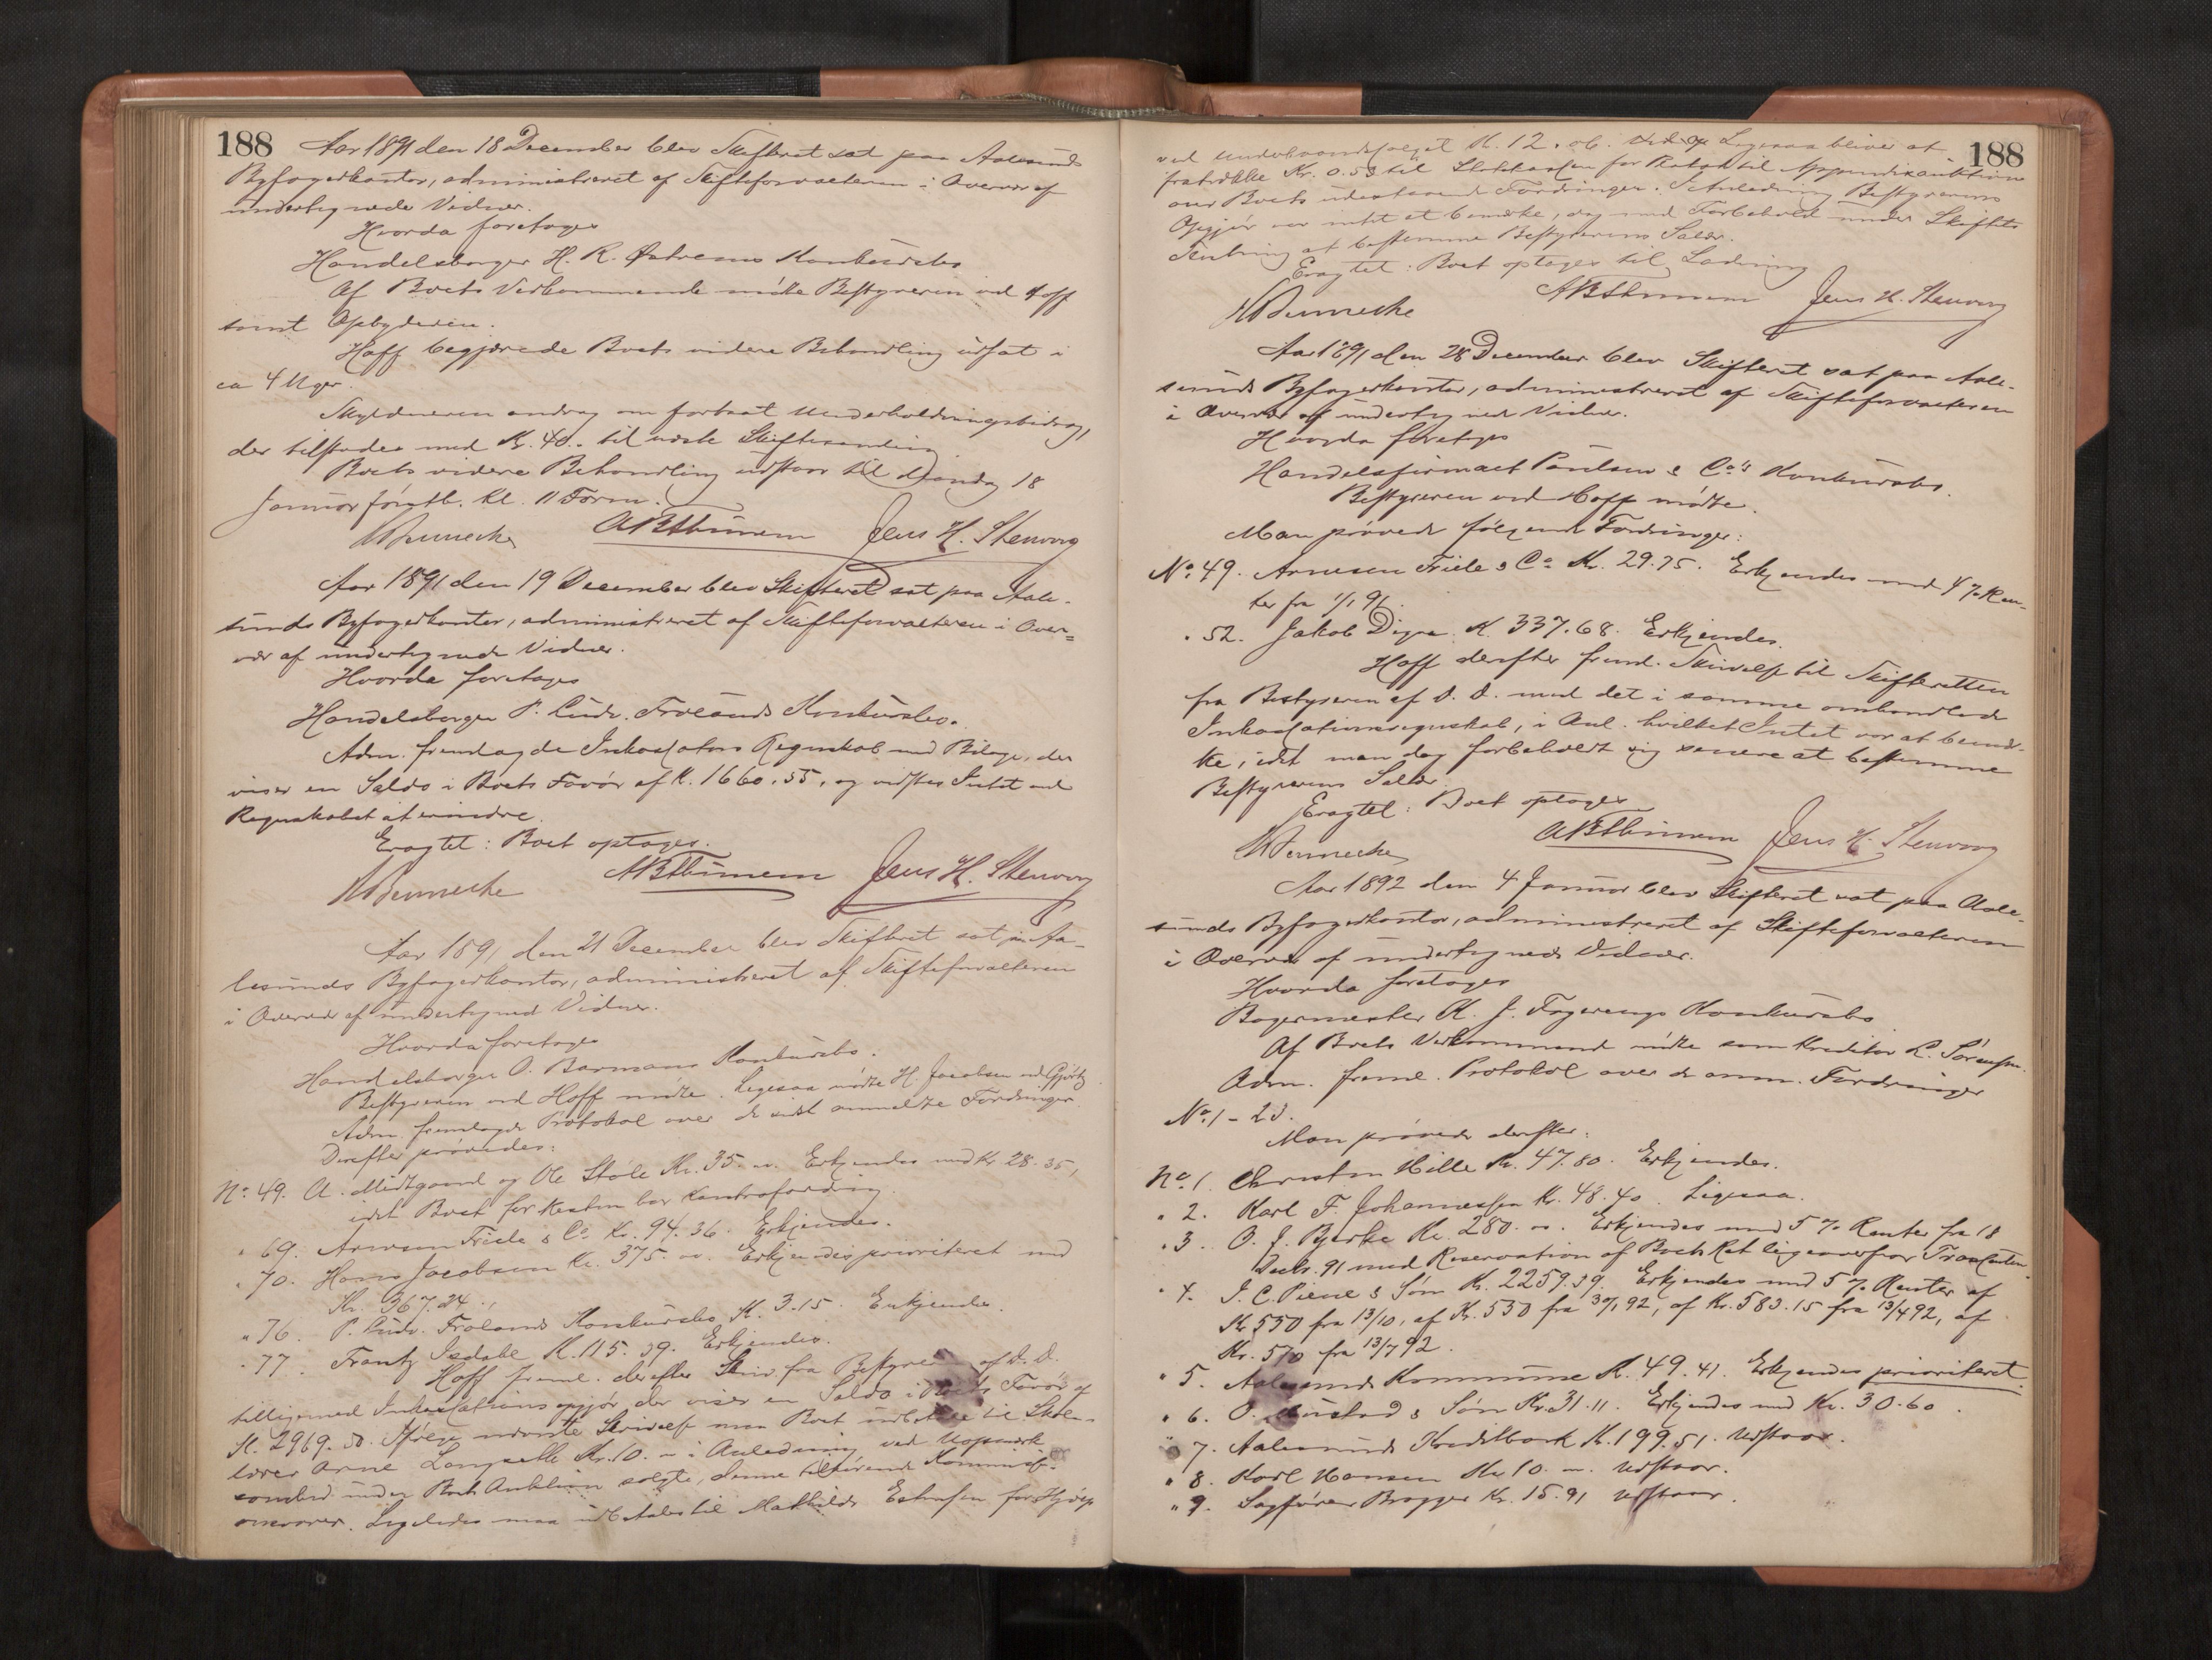 188
Aar 1891 den 18 December blev Skifteret sat paa Aalesunds
Byfogedkontor, administreret af Skifteforvalteren i Overvær af
undertegnede Vidner.
Hvorda foretoges
Handelsborger H. R. Østrems Konkursbo
Af Boets Vedkommende mødte Bestyreren ved Hoff
samt Opbyderen.
Hoff begjærede Boets videre Behandling udsat i
ca 4 Uger.
Skyldneren androg om fortsat Underholdningsbidrag,
der tilstodes med Kr. 40.- til næste Skiftesamling
Boets videre Behandling udstaar til Mandag 18
Januar førstk. Kl. 11 Form.
Jens H. Stenvorg
Aar 1891 den 19 December blev Skifteret sat paa Aale-
sunds Byfogedkontor, administreret af Skifteforvalteren i Over=
vær af undertegnede Vidner.
Hvorda foretoges
Handelsborger P. Ludv. Frølands Konkursbo.
Adm. fremlagde Inkassators Regnskab med Bilage, der
viser en Saldo i Boets Favør af K. 1660.55, og vidstes Intet ved
Regnskabet at erindre.
Eragtet: Boet optages.
Jens H. Stenvorg
Aar 1891 den 21 December blev Skifteret sat paa Aa-
lesunds Byfogedkontor, administreret af Skifteforvalteren
i Overvær af undertegned Vidner.
Hvorda foretoges
Handelsborger O. Barmans Konkursbo.
Bestyreren ved Hoff mødte. Ligesaa mødte H. Jacobsen ved
Adm. fremlagde Protokol over de sidst anmeldte Fordringer
Derefter prøvedes:
No. 49. A. Midtgaard og Ole Støle Kr. 35.00. Erkjendes med Kr 28.35,
idet Boet for Resten har Kontrafordring.
" 69. Arnesen Friele & Co. Kr. 94.36. Erkjendes.
" 70. Hans Jacobsen Kr. 375.00. Erkjendes prioriteret med
Kr. 367.24.
" 76. P. Ludv. Frølands Konkursbo K. 3.15. Erkjendes.
" 77. Frantz Isdahl K. 115.39. Erkjendes.
Hoff freml. derefter Skriv. fra Bestyreren af D. D.
tilligemed Inkassationsopgjør der viser en Saldo i Boets Favør af
K. 2969.50. Ifølge nævnte Skrivelse maa Boet udbetale til Skole-
lærer Arne Langsæth Kr. 10.- i Anledning ved
under Boets Auktion solgte, denne tilhørende
Ligeledes maa udbetales til Mathilde for
188
ved Underhaandssalget K. 12.06. Ligesaa bliver at
fratrække Kr. 0.53 til Statskassen for til Appendixauktion
over Boets udestaaende Fordringer. I Anledning Bestyrerens
Opgjør var intet at bemærke, dog med Forbehold under Skiftets
Slutning at bestemme Bestyrerens Salær.
Eragtet: Boet optages til Lodning
Jens H. Stenvorg
Aar 1891 den 28 December blev Skifteret sat paa Aale-
sunds Byfogedkontor, administreret af Skifteforvalteren
i Overvær af undertegned Vidner.
Hvorda foretoges
Handelsfirmaet Paulsen & Co's Konkursbo.
Bestyreren ved Hoff mødte.
Man prøvede følgende Fordringer:
No. 49. Arnesen Friele & Co. Kr. 29.75. Erkjendes med 4 % Ren-
ter fra 1/1 91.
" 52. Jakob Digre K. 337.68. Erkjendes.
Hoff derefter freml. Skrivelse til Skifteretten
fra Bestyreren af D. D. med det i samme omhandlede
Inkassationsregnskab, i Anl. hvilket Intet var at bemær-
ke, idet man dog forbeholdt sig senere at bestemme
Bestyrerens Salær.
Eragtet: Boet optages
Jens H. Stenvorg
Aar 1892 den 4 Januar blev Skifteret sat paa Aale-
sunds Byfogedkontor, administreret af Skifteforvalteren
i Overvær af undertegnede Vidner.
Hvorda foretoges
Bagermester K. J. Fagerengs Konkursbo
Af Boets Vedkommend mødte som Kreditor L. Sørensen.
Adm. freml. Protokol over de anm. Fordringer
No. 1 - 23.
Man prøvede derefter:
No. 1. Christen Hille Kr. 47.80. Erkjendes.
" 2. Karl F. Johannessen Kr. 48.40. Ligesaa.
" 3. O. J. Bjerke Kr. 280.00. Erkjendes med 5 % Renter fra 18
Decbr. 91 med Reservation af Boets Ret ligeoverfor
" 4. I. C. Piene & Søn K. 2259.39. Erkjendes med 5 % Renter af
Kr 550 fra 13/10, af Kr. 550 fra 30/1 92, af Kr. 583.15 fra 13/4 92, af
Kr. 570 fra 13/7 92.
" 5. Aalesunds Kommune K. 49.41. Erkjendes prioriteret.
" 6. O. Mustad & Søn Kr. 31.11. Erkjendes med Kr. 30.60.
" 7. Aalesunds Kreditbank K. 199.51. Udstaar.
" 8. Karl Hansen Kr 10.00. Udstaar.
" 9. Sagfører Brogger Kr. 15.91 Udstaar.